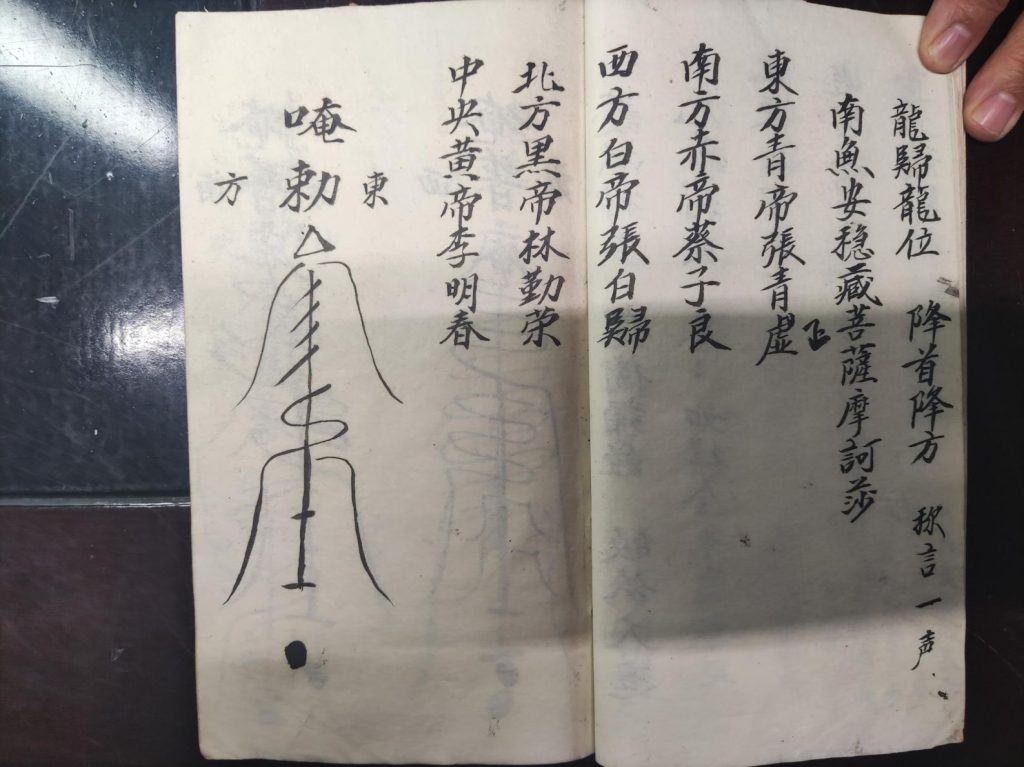 龍歸龍位　降首降方　称言一声
南魚安穏藏菩薩摩訶莎
東方青帝張青虛
南方赤帝蔡子良
西方白帝張白歸
北方黑帝林勤荣
中央黃帝李明春
東
唵勅
方